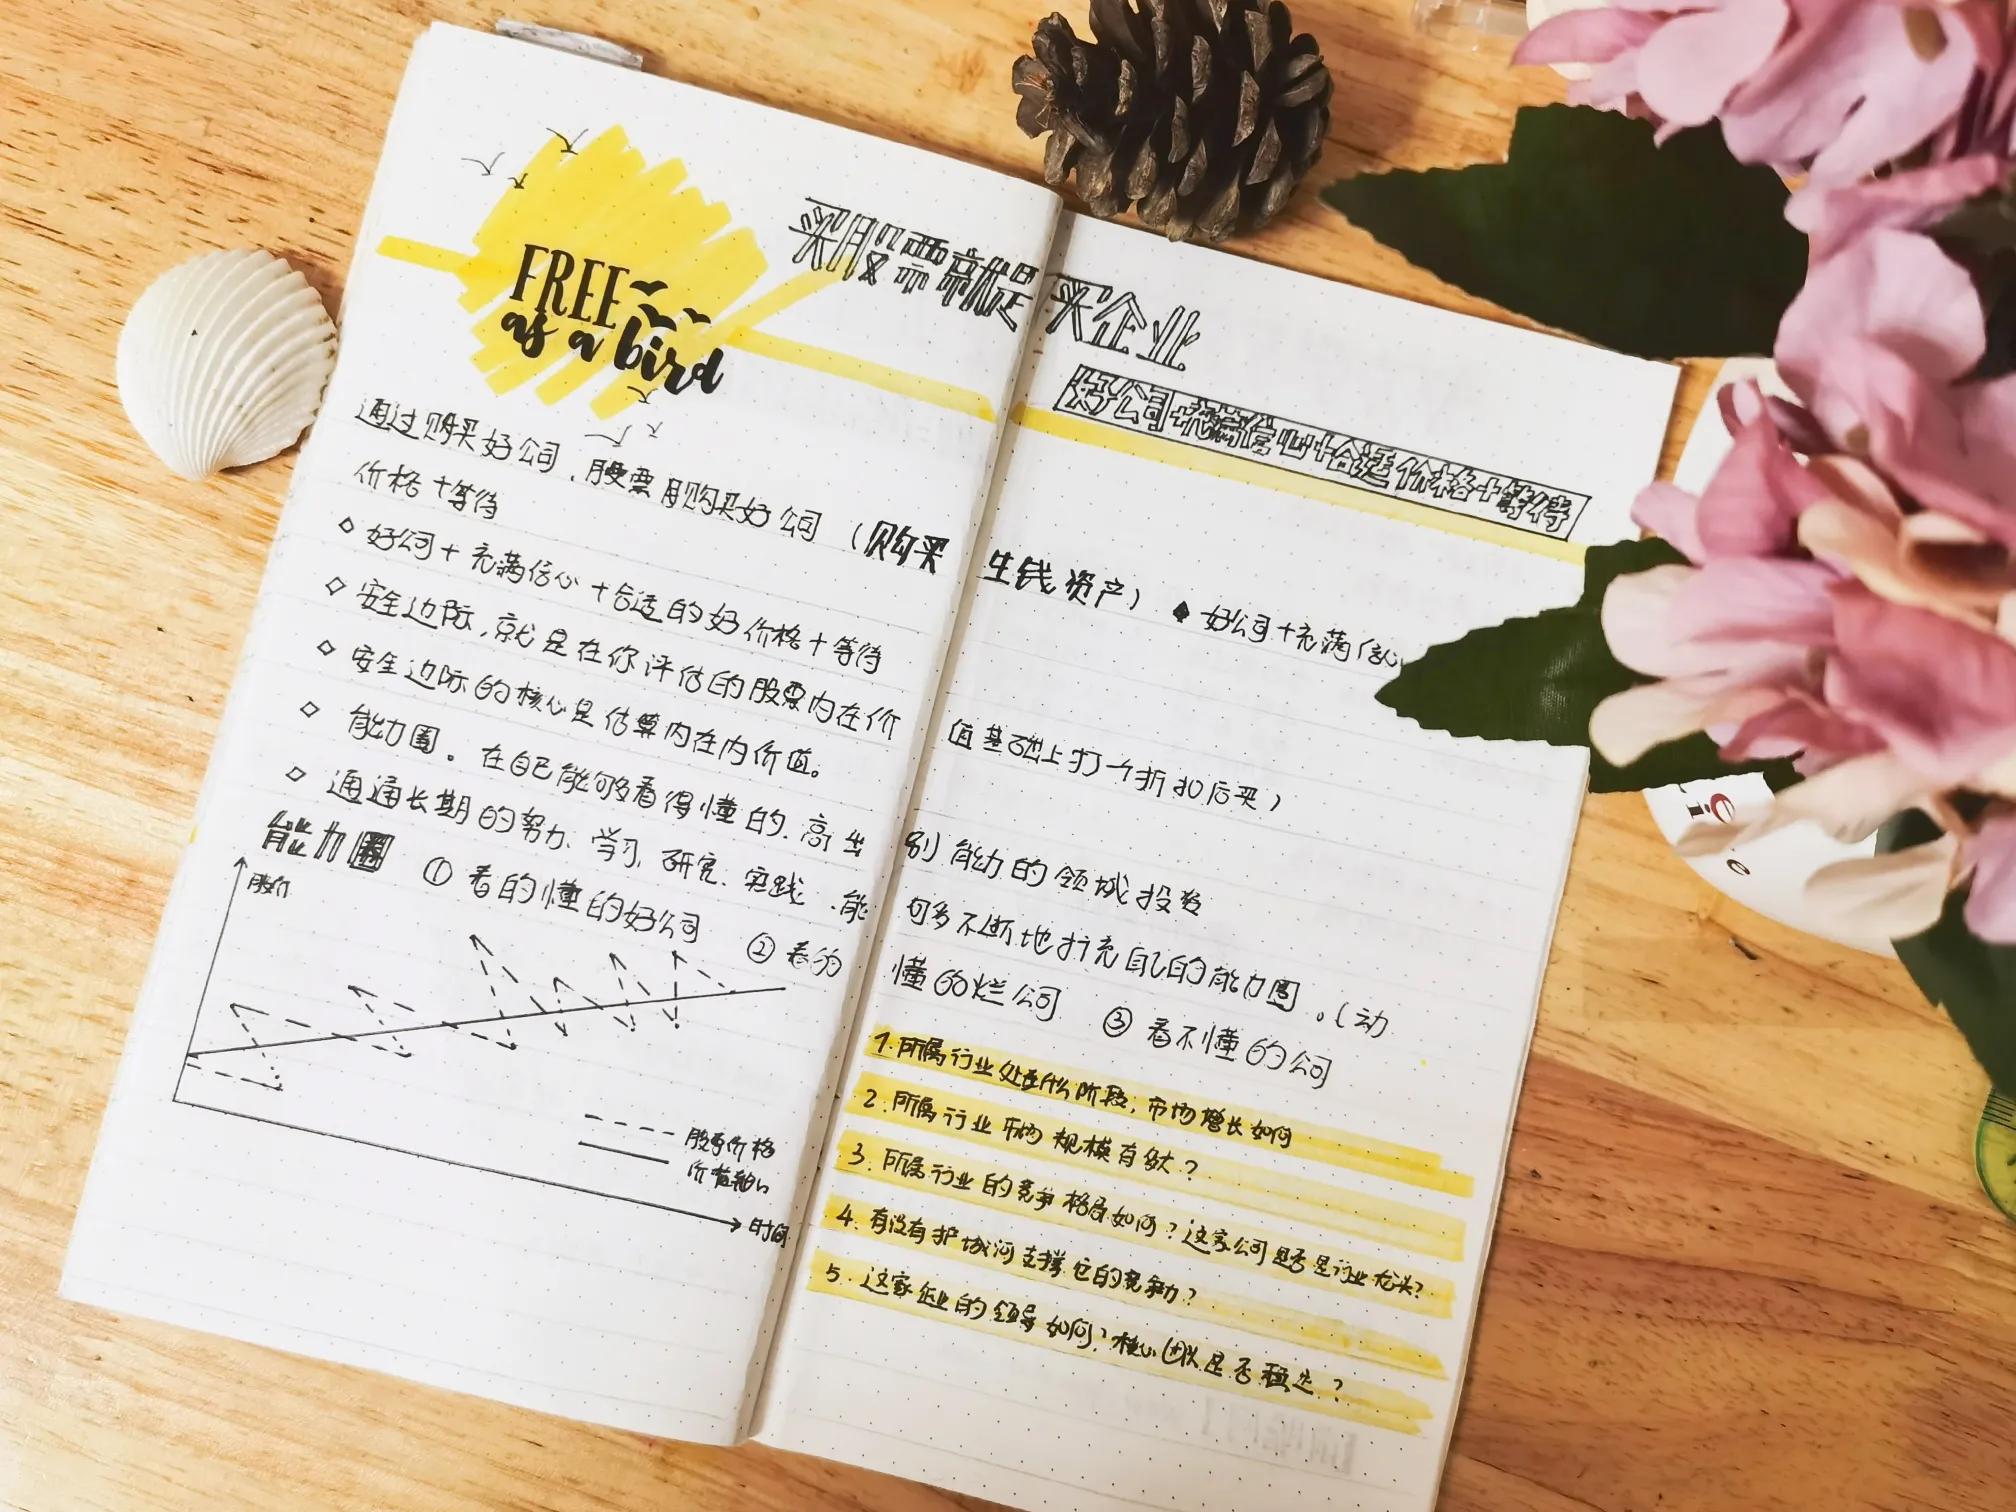 FREE
as a bird
买股票就是买企业
好公司+充满信心+恰适价格+等待
通过购买好公司、股票用购买好公司（购买生钱资产）◆好公司+充满信心
价格+等待
◇ 好公司+充满信心+合适的好价格+等待
◇ 安全边际,就是在你评估的股票内在价值基础上打个折扣后买）
◇ 安全边际的核心是估算内在内价值。
◇ 能力圈。在自己能够看得懂的、高出别能力的领域投资
◇ 通通长期的努力、学习、研究、实践、能够不断地扩充自己的能力圈。（动
能力圈 ① 看的懂的好公司 ② 看的懂的烂公司 ③ 看不懂的公司
股价
股票价格
时间
1.所属行业处在什么阶段,市场增长如何
2.所属行业市场规模有多大?
3.所属行业的竞争格局如何?这家公司是否是行业龙头?
4.有没有护城河支撑它的竞争力?
5.这家企业的领导如何?核心团队是否稳定?